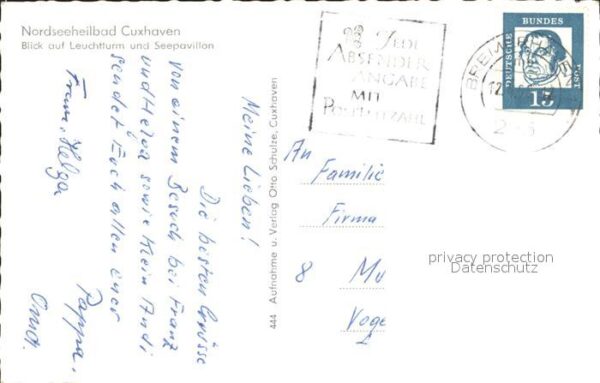 Nordseeheilbad Cuxhaven
Blick auf Leuchtturm und Seepavillon
Meine Lieben!
Die besten Grüsse
von einem Besuch bei Franz
und Helga sowie Klein Andi
sendet Euch allen euer
Pappa,
Franz, Helga
Oma.
444 Aufnahme u. Verlag Otto Schulze, Cuxhaven
JEDE
ABSENDER
ANGABE
MIT
POSTLEITZAHL
BREM
12
DEUTSCHE
BUNDES
POST
15
An
Familie
Firma
8 Mü
Voge
privacy protection
Datenschutz